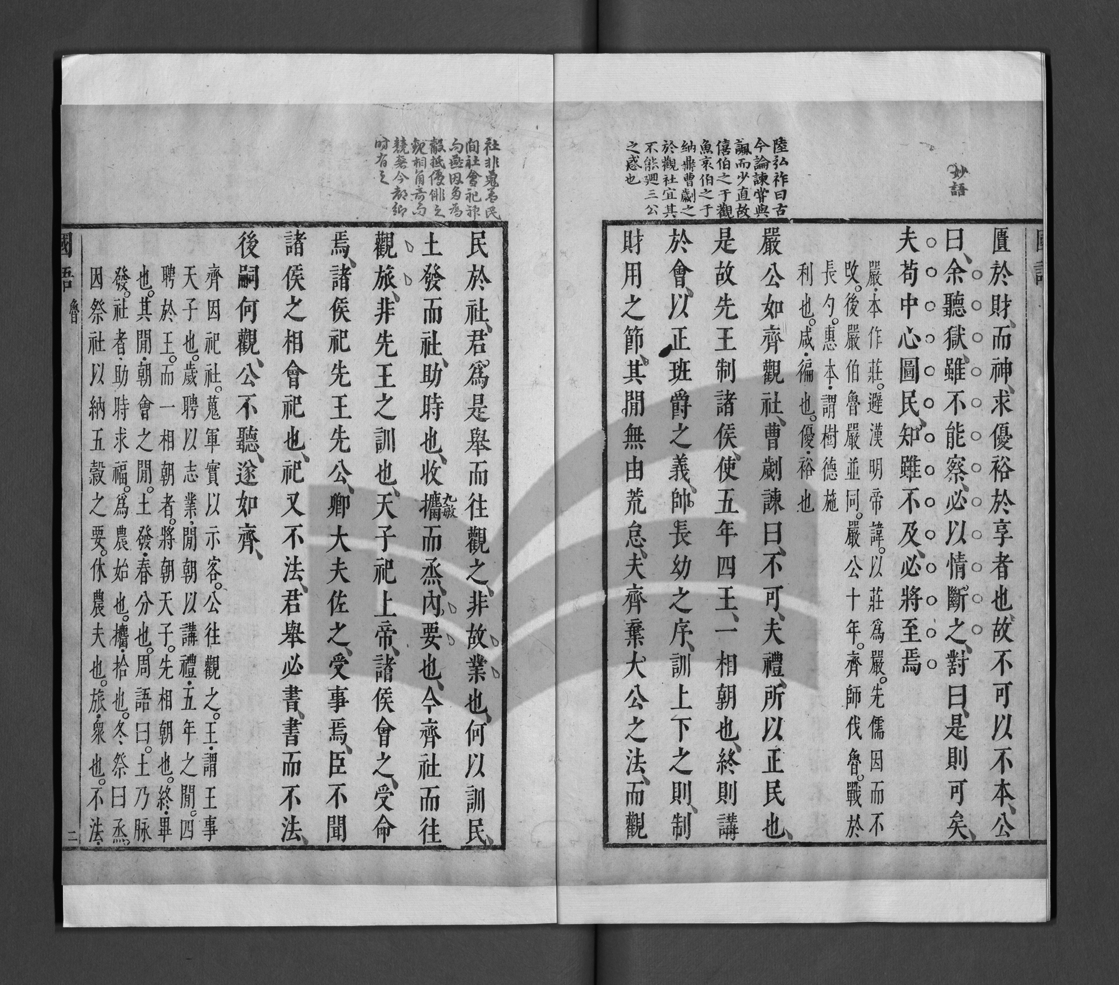 妙語
陸弘祚曰古
今論諫嘗與
諷而少直故
僖伯之于觀
魚哀伯之于
納鼎曹劌之
於觀社宜其
不能遡三公
之惑也
匱於財、而神求優裕於享者也、故不可以不本、公
曰、余聽獄、雖不能察、必以情斷之、對曰、是則可矣、
夫苟中心圖民、知雖不及、必將至焉
嚴・本作莊。遲漢明帝諱。以莊爲嚴。先儒因而不
攺。後嚴伯魯嚴並同。嚴公十年。齊師伐魯。戰於
長勺。惠本・謂樹德施
利也。咸・徧也。優・裕也
嚴公如齊觀社、曹劌諫曰、不可、夫禮、所以正民也、
是故先王制諸侯、使五年四王、一相朝也、終則講
於會、以正班爵之義、帥長幼之序、訓上下之則、制
財用之節、其閒無由荒怠、夫齊棄大公之法、而觀
社非蒐爲民
間社會祀祚
競
今都鄉
時有之
民於社、君爲是舉而往觀之、非故業也、何以訓民、
土發而社、助時也、收攟而烝、內要也、今齊社而往
觀旅、非先王之訓也、天子祀上帝、諸侯會之、受命
焉、諸侯祀先王先公、卿大夫佐之、受事焉、臣不聞
諸侯之相會祀也、祀又不法、君舉必書、書而不法、
後嗣何觀、公不聽、遂如齊、
齊因祀社。蒐軍實以示客。公往觀之。王・謂王事
天子也。歲聘以志業・閒朝以講禮・五年之閒。四
聘於王。而一相朝者。將朝天子。先相朝也。終・畢
也。其閒・朝會之閒。土發・春分也。周語曰。土乃脉
發。社者・助時求福。爲農始也。攟・拾也。冬祭曰烝。
因祭社以納五穀之要。休農夫也。旅・衆也。不法・
國語
魯
二